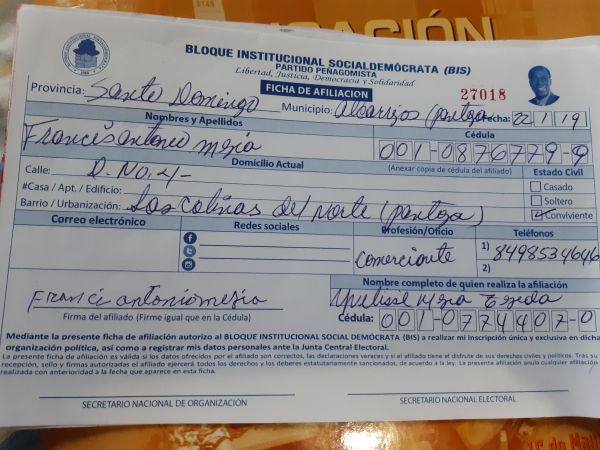 BLOQUE INSTITUCIONAL SOCIALDEMÓCRATA (BIS)
PARTIDO PEÑAGOMISTA
Libertad, Justicia, Democracia y Solidaridad
FICHA DE AFILIACION
27018
Provincia: Santo Domingo Municipio: alcarrizos pantoja Fecha: 22 1 19
Nombres y Apellidos Cédula
Francés antonio mejia 001-0876779-9
Domicilio Actual (Anexar copia de cédula del afiliado) Estado Civil
Calle: D. No. 4- Casado
#Casa / Apt. / Edificio: Soltero
Barrio / Urbanización: Las colinas del norte (pantoja) Conviviente
Correo electrónico Redes sociales Profesión/Oficio Teléfonos
comerciante 1) 8498534646
2)
Nombre completo de quien realiza la afiliación
Franci antonio mejia
Firma del afiliado (Firme igual que en la Cédula) Cédula: 001-0774407-0
Mediante la presente ficha de afiliación autorizo al BLOQUE INSTITUCIONAL SOCIAL DEMÓCRATA (BIS) a realizar mi inscripción única y exclusiva en dicha
organización política, así como a registrar mis datos personales ante la Junta Central Electoral.
La presente ficha de afiliación es válida si los datos ofrecidos por el afiliado son correctos, las declaraciones veraces y si el afiliado tiene el disfrute de sus derechos civiles y políticos. Tras su
recepción, sello y firmas autorizadas el afiliado ejercerá todos los derechos y los deberes estatutariamente sancionados, de acuerdo a la ley. La presente afiliación anula cualquier afiliación
realizada con anterioridad a la fecha que aparece en esta ficha.
SECRETARIO NACIONAL DE ORGANIZACIÓN SECRETARIO NACIONAL ELECTORAL